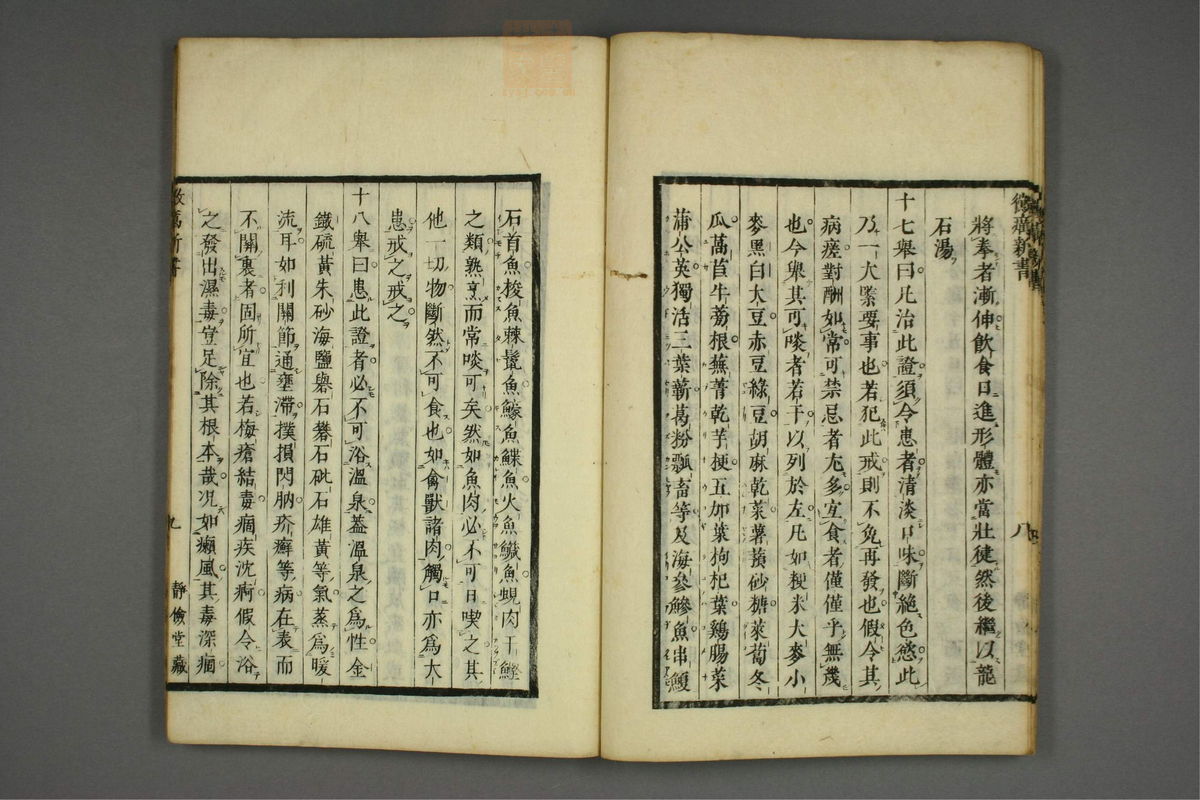 黴癘新書
八
將奉者漸伸飲食日進形體亦當壯徤然後繼以龍
石湯
十七舉曰凡治此證須令患者清淡口味斷絶色慾此
乃一大緊要事也若犯此戒則不免再發也假令其
病瘥對酬如常可禁忌者尢多宜食者僅僅乎無幾
也今舉其可啖者若干以列於左凡如粳米大麥小
麥黑白大豆赤豆綠豆胡麻乾菜薯蕷砂糖萊菔冬
瓜萵苣牛蒡根蕪菁乾芋梗五加葉枸杞葉鷄腸菜
蒲公英獨活三葉蘄葛粉瓢畜等及海參鰺魚串鰒
石首魚梭魚棘鬣魚鱇魚鰈魚火魚鱵魚蜆肉干鰹
之類熟烹而常啖可矣然如魚肉必不可日喫之其
他一切物斷然不可食也如禽獸諸肉觸口亦爲大
患戒之戒之
十八舉曰患此證者必不可浴溫泉葢溫泉之爲性金
鐵硫黃朱砂海鹽礜石礬石砒石雄黃等氣蒸爲暖
流耳如利關節通壅滯撲損閃肭疥癬等病在表而
不關裏者固所宜也若梅瘡結毒痼疾沈痾假令浴
之發出濕毒豈足除其根本哉况如癩風其毒深痼
九
靜儉堂藏